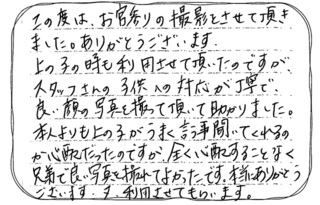 この度は、お宮参りの撮影をさせて頂き
ました。ありがとうございます。
上の子の時も利用させて頂いたのですが、
スタッフさんの子供への対応が丁寧で、
良い顔の写真を撮って頂いて助かりました。
本人よりも上の子がうまく言う事聞いてくれるの
か心配だったのですが、全く心配することなく
兄弟で良い写真を撮れてよかったです。本当にありがとう
ございます。又、利用させてもらいます。